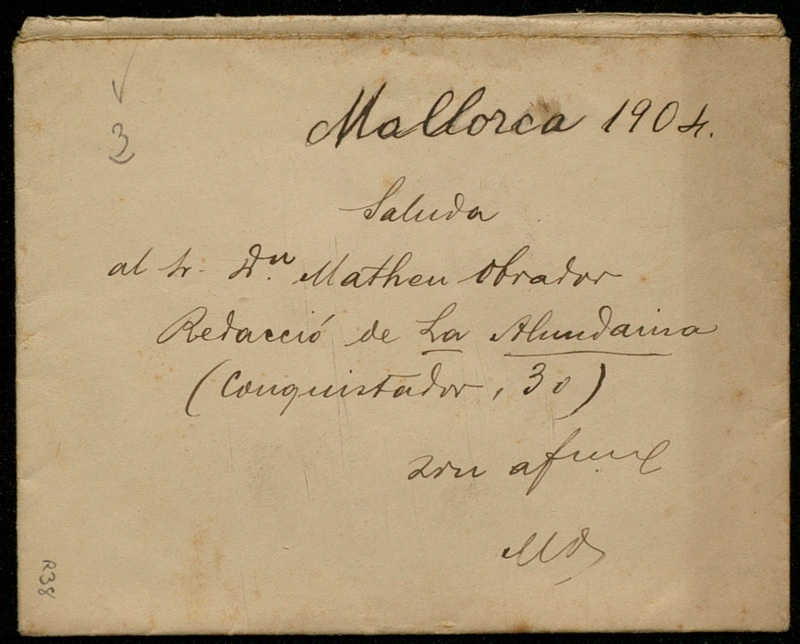 3
Mallorca 1904.
Saluda
al Sr. Dn Matheu Obrador
Redacció de La Almudaina
(Conquistador, 30)
son
R38